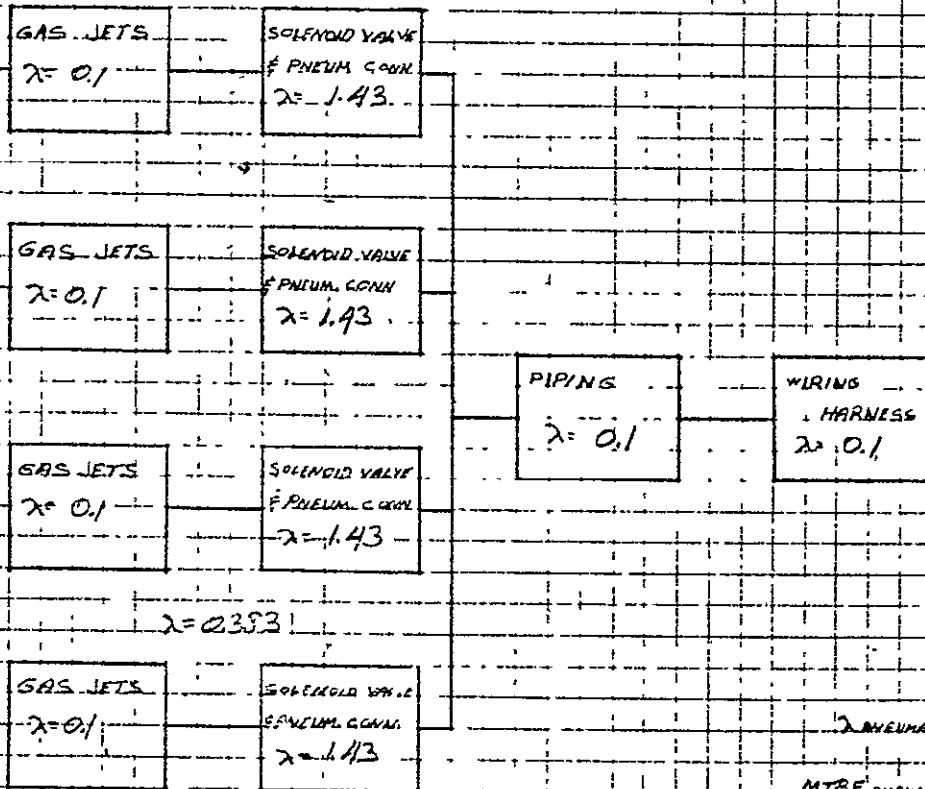 GAS JETS
λ= 0.1
SOLENOID VALVE
& PNEUM. CONN.
λ= 1.43
GAS JETS
λ= 0.1
SOLENOID VALVE
& PNEUM. CONN
λ= 1.43
PIPING
λ= 0.1
WIRING
HARNESS
λ= 0.1
GAS JETS
λ= 0.1
SOLENOID VALVE
& PNEUM. CONN.
λ= 1.43
GAS JETS
λ= 0.1
SOLENOID VALVE
& PNEUM. CONN.
λ= 1.43
MTBF